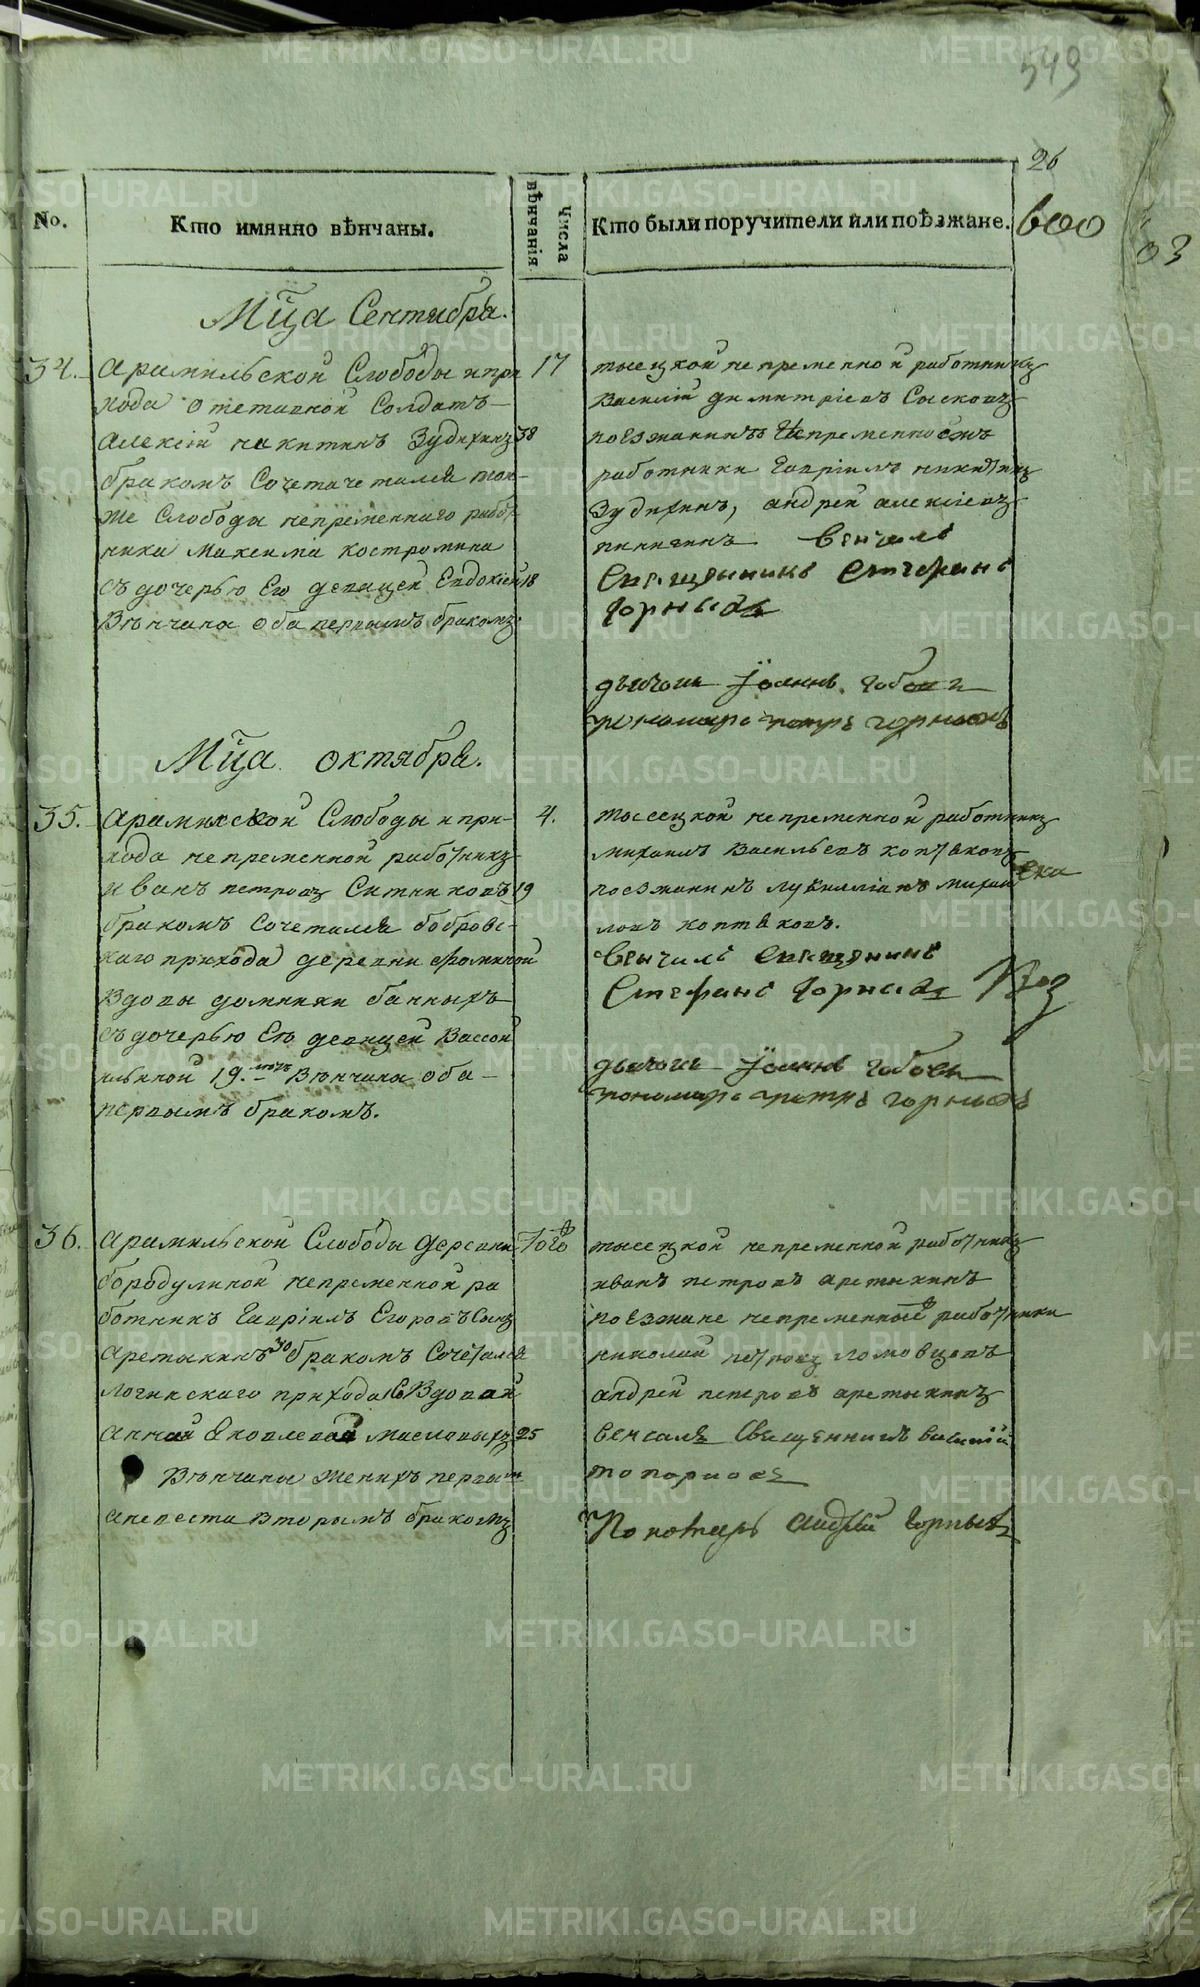 549
26
No.
Кто имянно вѣнчаны.
Числа вѣнчанія
Кто были поручители или поѣзжане.
600
03
Мца Сентября.
34. Арамильской Слободы и при
хода отставной Солдатъ
Алексій Никитинъ Зудихинъ 38
бракомъ Сочетачетался той
же Слободы непременнаго работ
ника Максима Костромина
съ дочерью Его девицей Евдокіей 18
Венчаны оба первымъ бракомъ
17
тысецкой непременной работникъ
Василій Димитріевъ Сысковъ
поезжанинъ непременной
работники Гавріилъ Никитинъ
Зудихинъ, Андрей Алексіевъ
Пинигинъ Венчалъ
Священникъ Стефанъ
Горныхъ
дьячокъ Іоаннъ
пономарь Петръ Горныхъ
Мца октября.
35. Арамильской Слободы и при-
хода непременной работникъ
Иванъ Петровъ Ситниковъ 19
бракомъ Сочетался бобровс-
каго прихода деревни Фоминой
Вдовы Домники банныхъ
съ дочерью Ея девицей Вассой
Ильиной 19. Венчаны оба
первымъ бракомъ.
4.
тысецкой непременной работникъ
Михаилъ Васильевъ Коптяковъ
поезжанинъ Лукиллианъ Михай
ловъ Коптяковъ.
Венчалъ Священникъ
Стефанъ Горныхъ
дьячокъ Іоаннъ
пономарь Петръ Горныхъ
36. Арамильской Слободы деревни
бородулиной непременной ра
ботникъ Гавріилъ Егоровъ Сынъ
Аретыкинъ 30 бракомъ Сочетался
логиновскаго прихода Со Вдовой
Анной Яковлевой масловыхъ 25
Венчаны Жених первым
а невеста Вторымъ бракомъ
Того
тысецкой непременной работникъ
Иванъ Петровъ Аретыкинъ
поезжане непременные работники
Николай Петровъ Ломовцевъ
Андрей Петровъ Аретыкинъ
Венчалъ Священникъ Василій
Топорковъ
Пономарь Андрей Горныхъ
METRIKI.GASO-URAL.RU